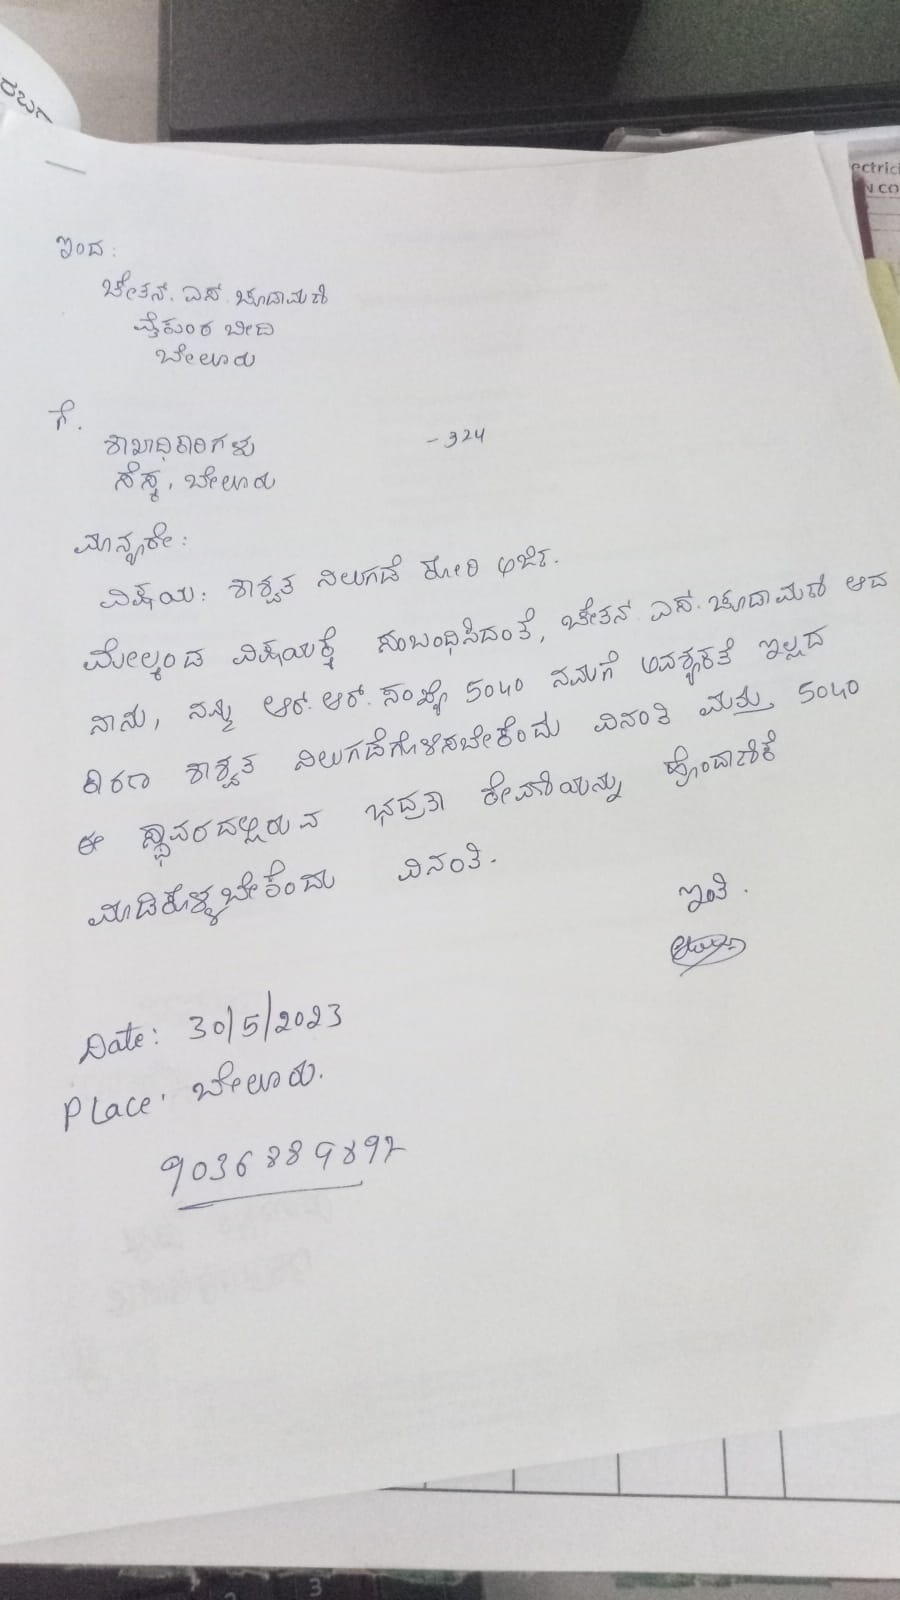 ರಬಗ
ectrici
N CO
ಇಂದ:
ಚೇತನ್. ಎಸ್. ಚೂಡಾಮಣಿ
ವೈಕುಂಠ ಬೀದಿ
ಬೇಲೂರು
ಗೆ.
ಶಾಖಾಧಿಕಾರಿಗಳು -324
ಸೆಸ್ಕ, ಬೇಲೂರು
ಮಾನ್ಯರೇ:
ವಿಷಯ: ಶಾಶ್ವತ ನಿಲುಗಡೆ ಕೋರಿ ಅರ್ಜಿ.
ಮೇಲ್ಕಂಡ ವಿಷಯಕ್ಕೆ ಸಂಬಂಧಿಸಿದಂತೆ, ಚೇತನ್ ಎಸ್. ಚೂಡಾಮಣಿ ಆದ
ನಾನು, ನಮ್ಮ ಆರ್. ಆರ್. ಸಂಖ್ಯೆ 5040 ನಮಗೆ ಅವಶ್ಯಕತೆ ಇಲ್ಲದ
ಕಾರಣ ಶಾಶ್ವತ ನಿಲುಗಡೆಗೊಳಿಸಬೇಕೆಂದು ವಿನಂತಿ ಮತ್ತು 5040
ಈ ಸ್ಥಾವರದಲ್ಲಿರುವ ಭದ್ರತಾ ಠೇವಣಿಯನ್ನು ಹೊಂದಾಣಿಕೆ
ಮಾಡಿಕೊಳ್ಳಬೇಕೆಂದು ವಿನಂತಿ.
ಇಂತಿ.
Date: 30/5/2023
Place: ಬೇಲೂರು.